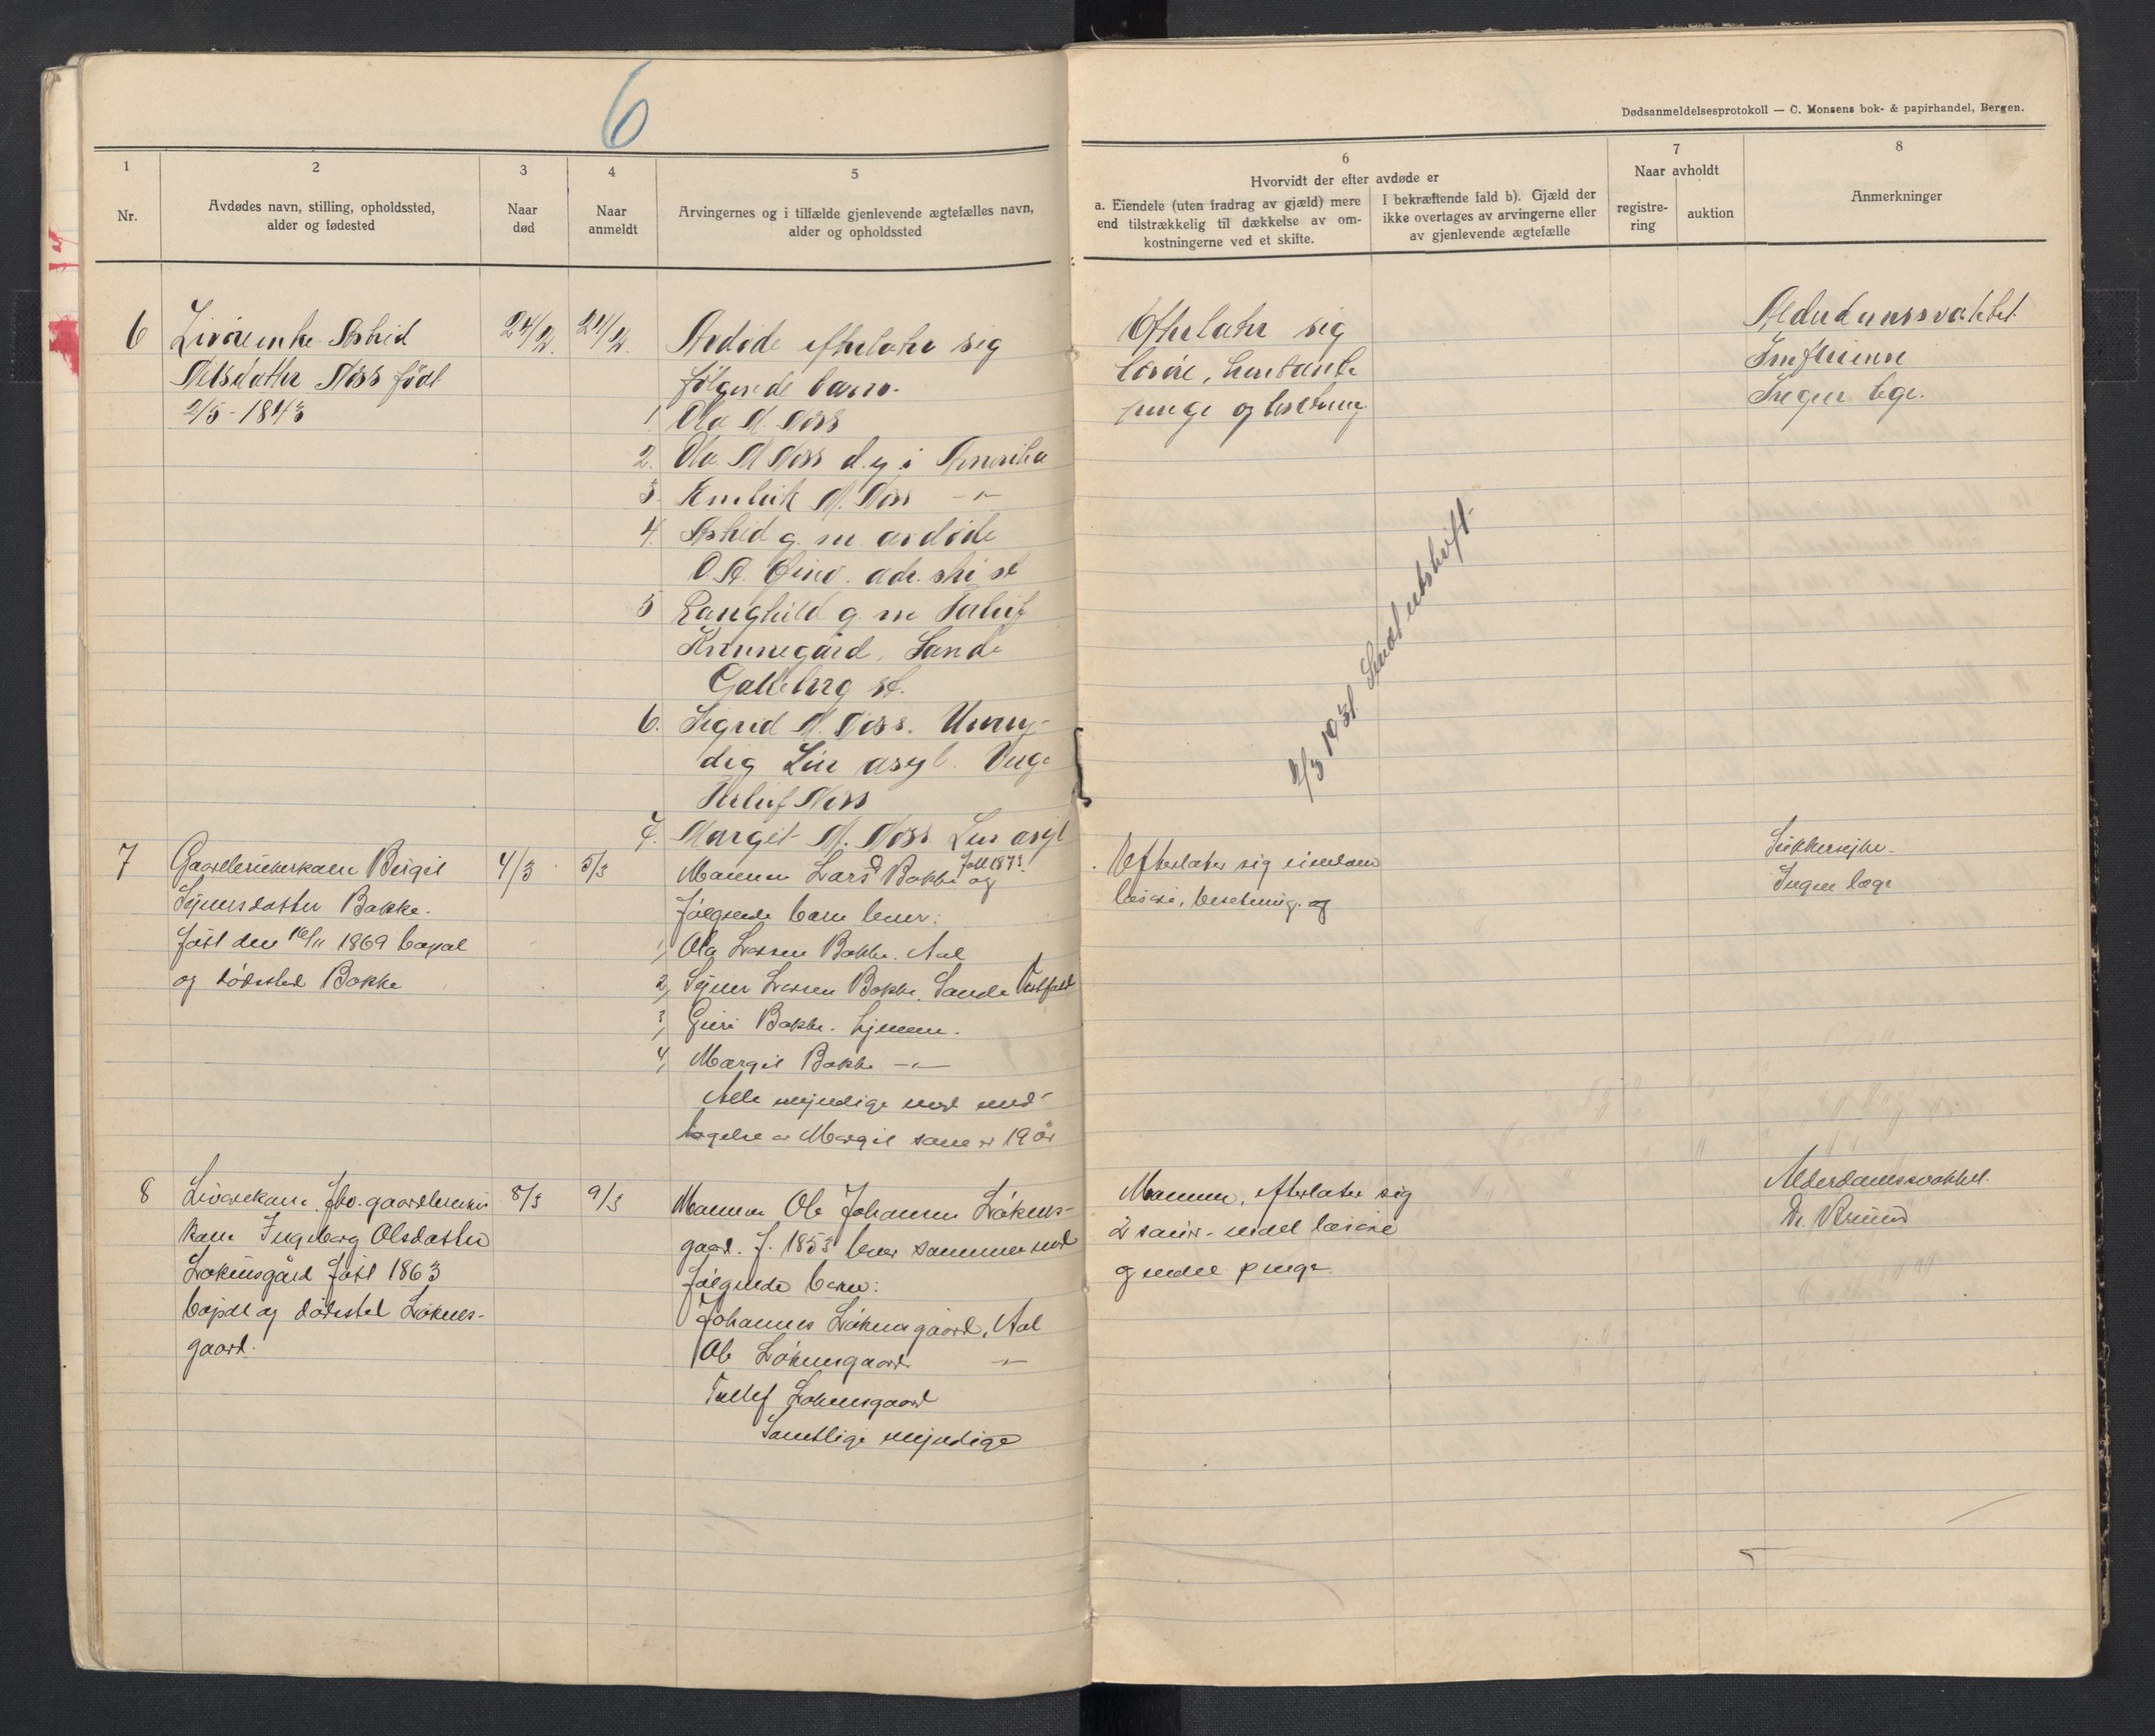 6
Dødsanmeldelsesprotokoll — C. Monsens bok- & papirhandel, Bergen.
1
2
3
4
5
6
7
8
Nr.
Avdødes navn, stilling, opholdssted,
alder og fødested
Naar
død
Naar
anmeldt
Arvingernes og i tilfælde gjenlevende ægtefælles navn,
alder og opholdssted
Hvorvidt der efter avdøde er
a. Eiendele (uten fradrag av gjæld) mere
end tilstrækkelig til dækkelse av om-
kostningerne ved et skifte.
I bekræftende fald b). Gjæld der
ikke overtages av arvingerne eller
av gjenlevende ægtefælle
Naar avholdt
registre-
ring
auktion
Anmerkninger
6
Livøreenke Astrid
Nilsdatter Noss født
2/5 - 1843
24/2.
24/2.
Avdøde efterlater sig
følgende barn.
1. Ola M. Noss
2. Ola M Noss d.y i Amerika
3. M. Noss -"-
4. Astrid g. m. avdøde
O. A. adr. Ski st
5 Ranghild g. m Tollef
Sande
Galleberg st.
6. Sigrid M. Noss. Umyn-
dig Lier asyl. Verge
Tollef Noss
7. Margit M. Noss. Lier asyl
Efterlater sig
løsøre, kontante
penge og besetning.
Alderdomssvakhet
Influenna
Ingen lege.
2/3 1931 Sendt utskrift.
7
Gaardbrukerkone Birgit
Syversdatter Bakke.
født den 10/11 1869 bopæl
og dødssted Bakke
4/3
5/3
Mannen Lars O Bakke født 1873 og
følgende barn lever:
1, Ola Larsen Bakke. Aal
2, Syver Larsen Bakke. Sande Vestfold
3, Guri Bakke. hjemme.
4, Margit Bakke -"-
Alle myndige med und-
tagelse av Margit som er 19 år
Efterlater sig eiendom
løsøre, besetning. og
Sukkersyke.
Ingen læge
8
Livørekone fhv. gaardbruker
kone Ingeborg Olsdatter
Løkensgård født 1863
bopæl og dødssted Løkens-
gaard.
8/3
9/3
Mannen Ole Johannsen Løkens-
gaard. f. 1853 lever sammen med
følgende barn:
Johannes Løkensgaard, Aal
Ole Løkensgaard -"-
Tollef Løkensgaard
Samtlige myndige
Mannen, efterlater sig
endel løsøre
og endel penge.
Alderdomssvakhet.
Dr.